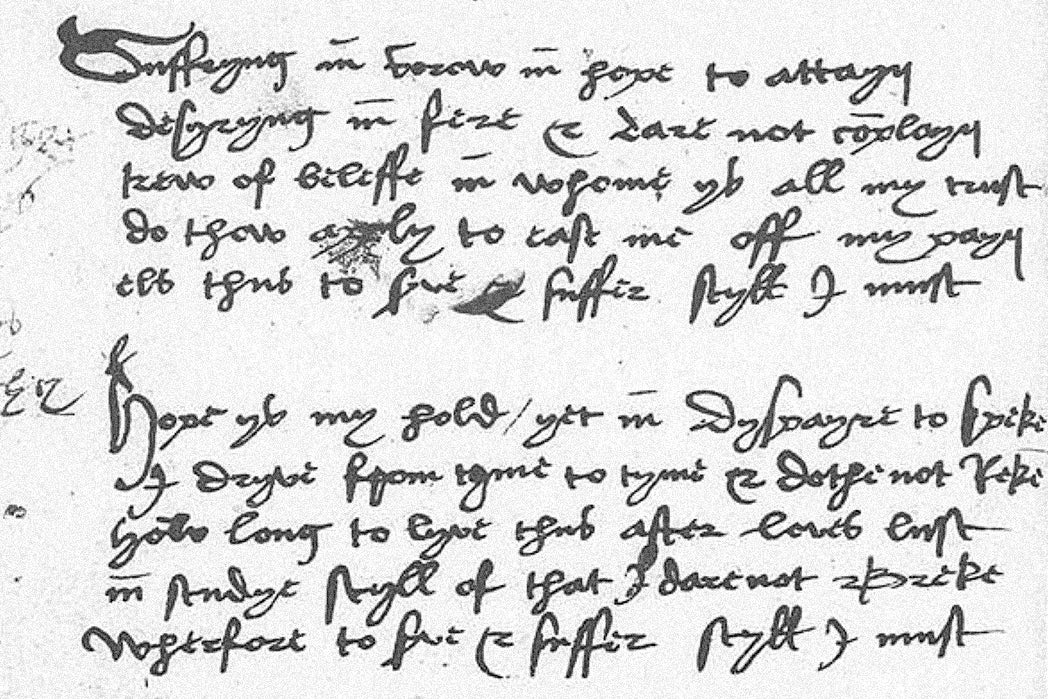 Suffryng in sorow in hope to attayn
desyryng in fere & dare not cōplayn
trew of beleffe in whome ys all my trust
do thow aply to ease me off my payn
els thus to s​rve & suffer styll I must
Hope ys my hold / yet in Dyspayre to speke
I dryve from tyme to tyme & dothe not Reke
how long to lyve thus after loves lust
in studye styll of that I dare not breke
Wherfore to srve & suffer styll I must